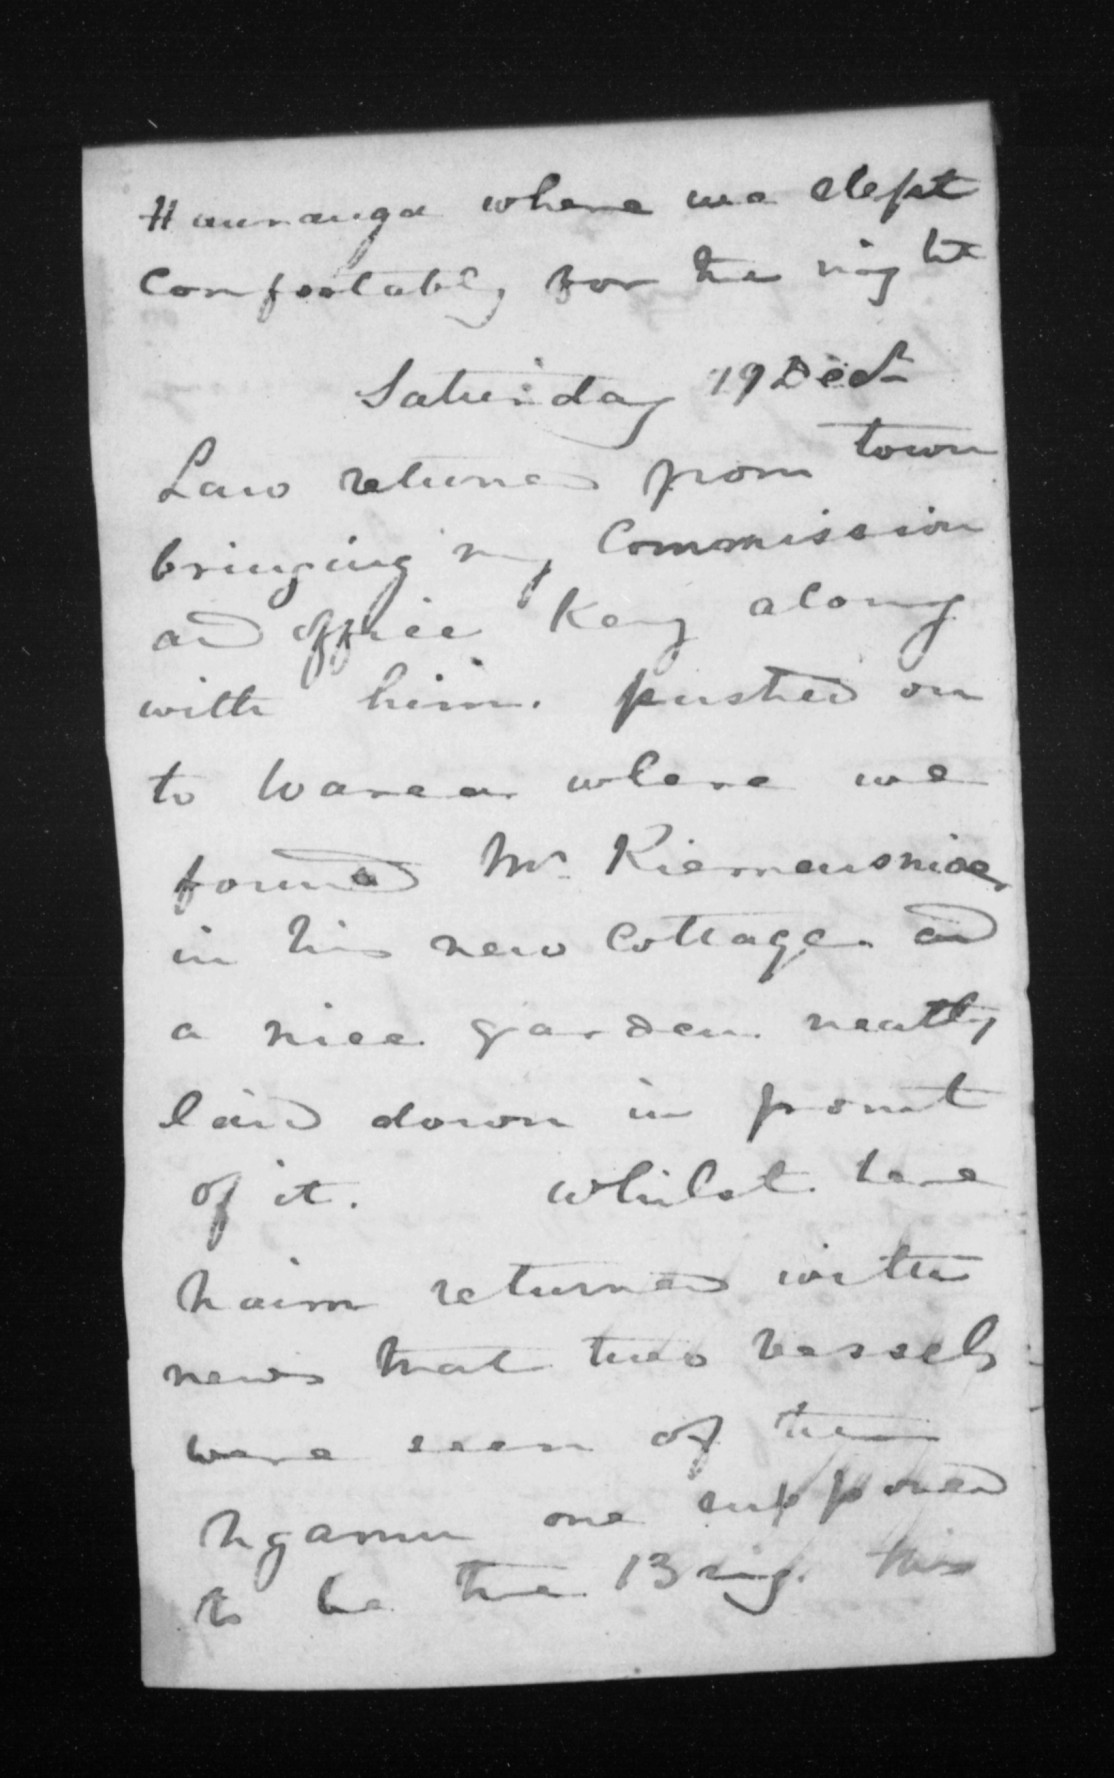 Hauranga where we slept
Comfortably for the night
Saturday 19 Decr
Law returned from town
bringing my Commission
and office Key along
with him. pushed on
to Warea where we
found Mr Riemensnider
in his new Cottage and
a nice garden neatly
laid down in front
of it. Whilst here
haim returned with
news that two vessels
were seen of the
Ngamu one supposed
to be the Brig. this